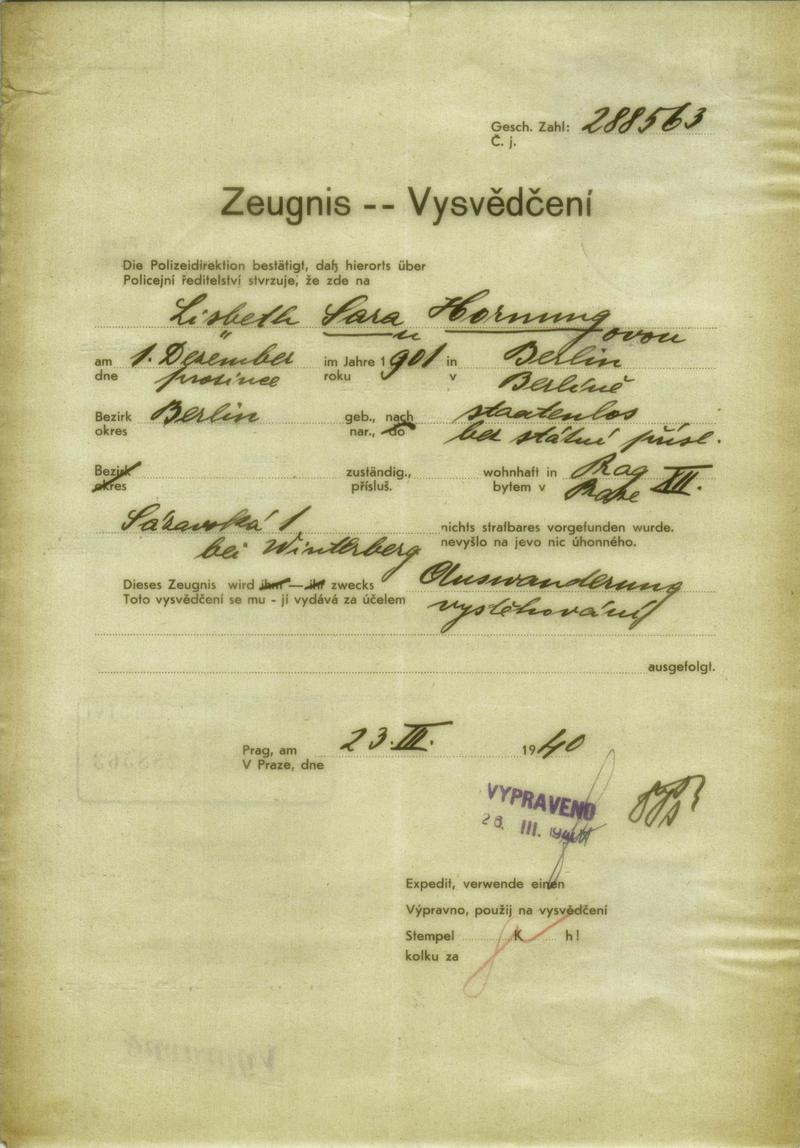 Gesch. Zahl: 288563
Č. j.
Zeugnis -- Vysvědčení
Die Polizeidirektion bestätigt, daß hierorts über
Policejní ředitelství stvrzuje, že zde na
Lisbeth Sara Hornung
ovou
am 1. Dezember im Jahre 1901 in Berlin
dne prosince roku v Berlíně
Bezirk Berlin geb., nach staatenlos
okres nar., do bez státní přísl.
Bezirk zuständig., wohnhaft in Prag XII.
okres přísluš. bytem v Praze
Sázavská 1 nichts strafbares vorgefunden wurde.
bei Winterberg nevyšlo na jevo nic úhonného.
Dieses Zeugnis wird ihm — ihr zwecks Auswanderung
Toto vysvědčení se mu - jí vydává za účelem vystěhování
ausgefolgt.
Prag, am 23. III. 1940
V Praze, dne
VYPRAVENO
III. 
Expedit, verwende einen
Výpravno, použij na vysvědčení
Stempel K h!
kolku za